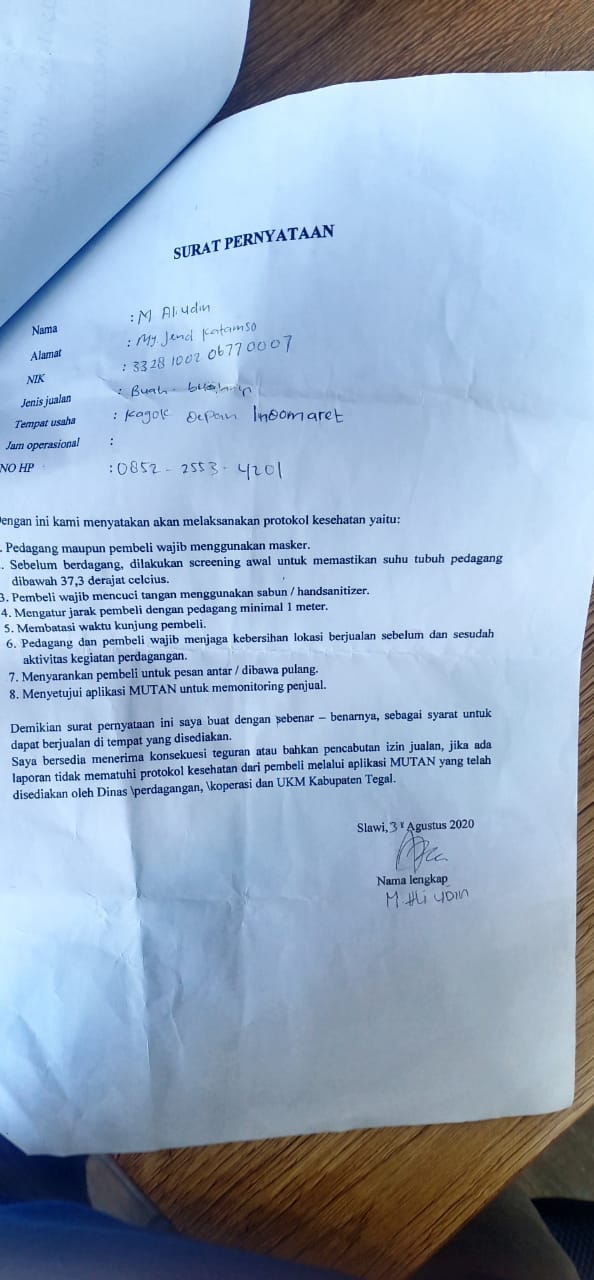 SURAT PERNYATAAN
Nama : M Aliudin
Alamat : My. Jend Katamso
NIK : 3328 1002 06770007
Jenis jualan : Buah - buahan
Tempat usaha : Kagok Depan Indomaret
Jam operasional :
NO HP : 0852 - 2553 - 4201
Dengan ini kami menyatakan akan melaksanakan protokol kesehatan yaitu:
. Pedagang maupun pembeli wajib menggunakan masker.
. Sebelum berdagang, dilakukan screening awal untuk memastikan suhu tubuh pedagang
dibawah 37,3 derajat celcius.
3. Pembeli wajib mencuci tangan menggunakan sabun / handsanitizer.
4. Mengatur jarak pembeli dengan pedagang minimal 1 meter.
5. Membatasi waktu kunjung pembeli.
6. Pedagang dan pembeli wajib menjaga kebersihan lokasi berjualan sebelum dan sesudah
aktivitas kegiatan perdagangan.
7. Menyarankan pembeli untuk pesan antar / dibawa pulang.
8. Menyetujui aplikasi MUTAN untuk memonitoring penjual.
Demikian surat pernyataan ini saya buat dengan sebenar – benarnya, sebagai syarat untuk
dapat berjualan di tempat yang disediakan.
Saya bersedia menerima konsekuesi teguran atau bahkan pencabutan izin jualan, jika ada
laporan tidak mematuhi protokol kesehatan dari pembeli melalui aplikasi MUTAN yang telah
disediakan oleh Dinas \perdagangan, \koperasi dan UKM Kabupaten Tegal.
Slawi, 31 Agustus 2020
Nama lengkap
M Aliudin